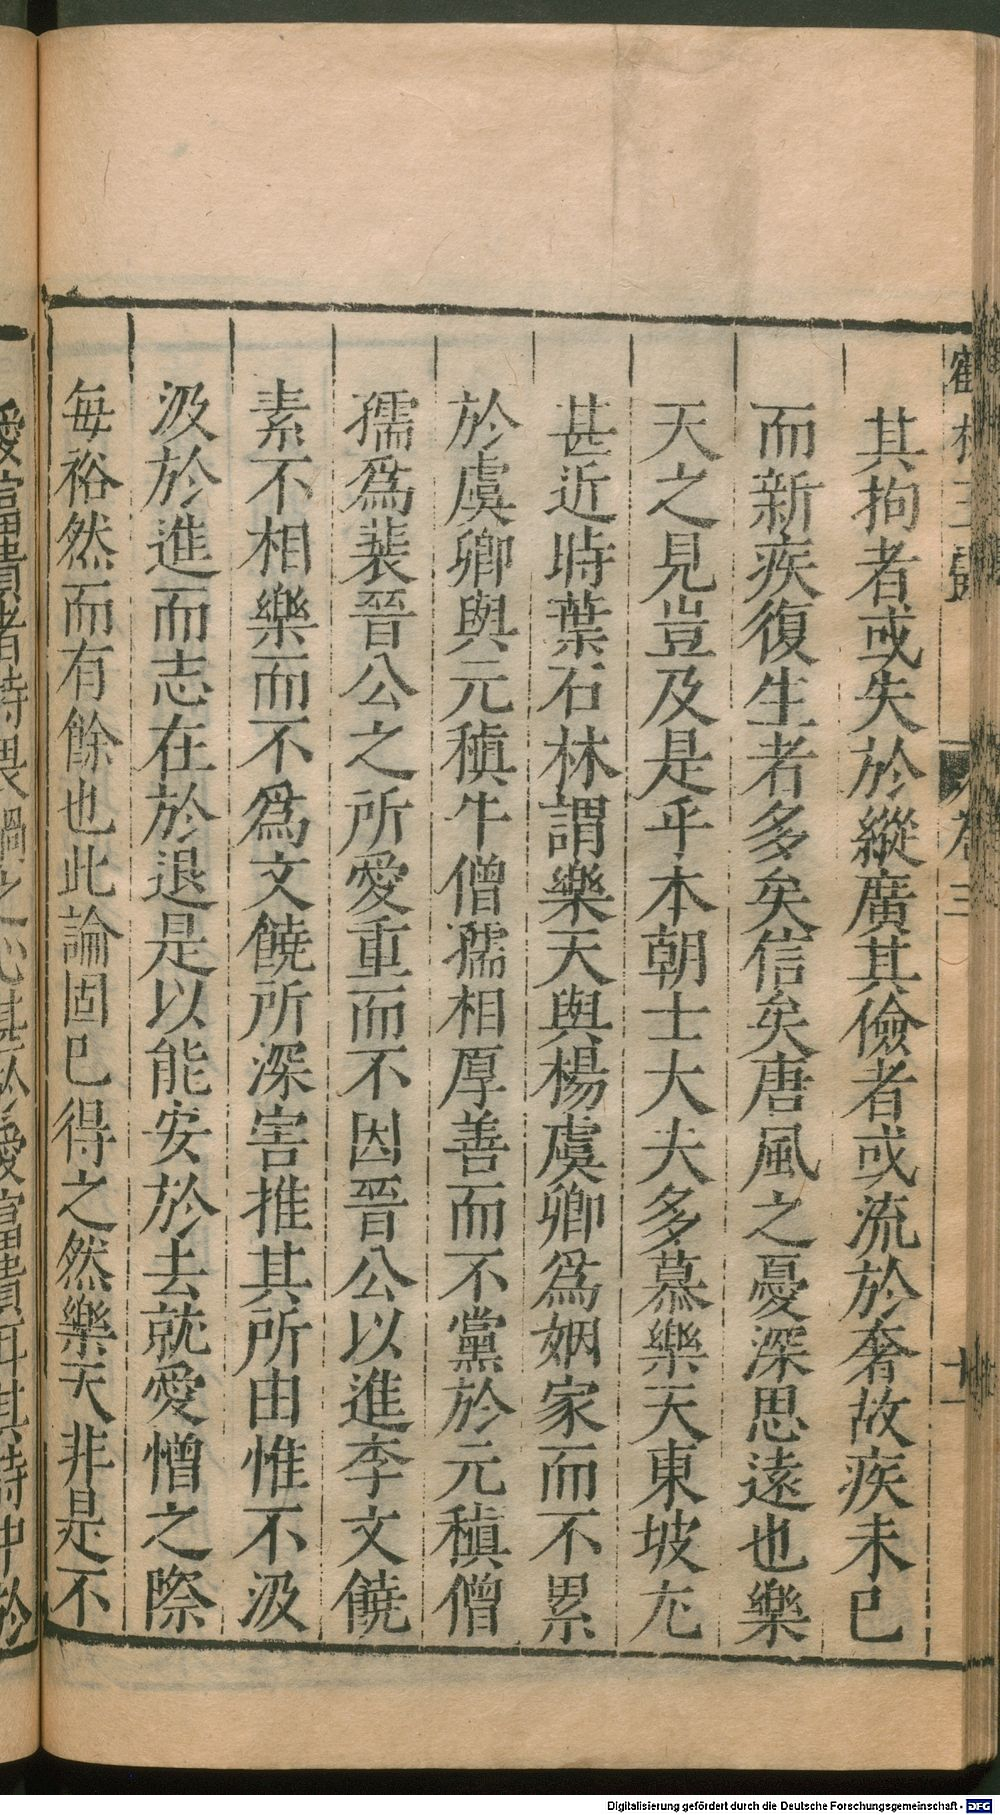 其拘者或失於縱廣其儉者或流於奢故疾未已
而新疾復生者多矣信矣唐風之憂深思遠也樂
天之見豈及是乎本朝士大夫多慕樂天東坡尤
甚近時葉石林謂樂天與楊虞卿爲姻家而不累
於虞卿與元稹牛僧孺相厚善而不黨於元稹僧
孺爲裴晉公之所愛重而不因晉公以進李文饒
素不相樂而不爲文饒所深害推其所由惟不汲
汲於進而志在於退是以能安於去就愛憎之際
每裕然而有餘也此論固已得之然樂天非是不
愛富貴者特畏禍之心甚於愛富貴耳其詩中於
Digitalisierung gefördert durch die Deutsche Forschungsgemeinschaft - DFG